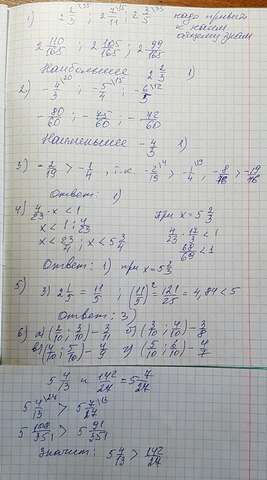 1) 2 2/3 \55 ; 2 7/11 \15 ; 2 3/5 \33 надо привести
к наим.
общему знам
2 110/165 ; 2 105/165 ; 2 99/165
Наибольшее 2 2/3 1)
2) -4/3 \20 ; -5/4 \15 ; -6/5 \12
-80/60 ; -75/60 ; -72/60
Наименьшее -4/3 1)
3) -2/19 > -1/4 , т.к. -2/19 \4 > -1/4 \19 , -8/76 > -19/76
Ответ: 1)
4) 4/23 · x < 1 при x = 5 2/3
x < 1 : 4/23 4/23 · 17/3 < 1
x < 23/4 ; x < 5 3/4 68/69 < 1
Ответ: 1) при x = 5 2/3
5) 3) 2 1/5 = 11/5 ; (11/5)² = 121/25 = 4,84 < 5
Ответ: 3)
6) а) (2/10 ; 3/10) - 3/11 б) (3/10 ; 4/10) - 3/8
в) (4/10 ; 5/10) - 4/9 г) (5/10 ; 6/10) - 4/7
5 4/13 и 142/27 = 5 7/27
5 4/13 \27 > 5 7/27 \13
5 108/351 > 5 91/351
Значит: 5 4/13 > 142/27